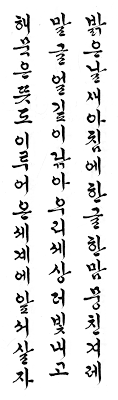 밝은날새아침에한글한맘뭉친겨레
말글얼깊이닦아우리쎄상러빛내고
해묵은뜻도이루어온쎄계에앞서살자